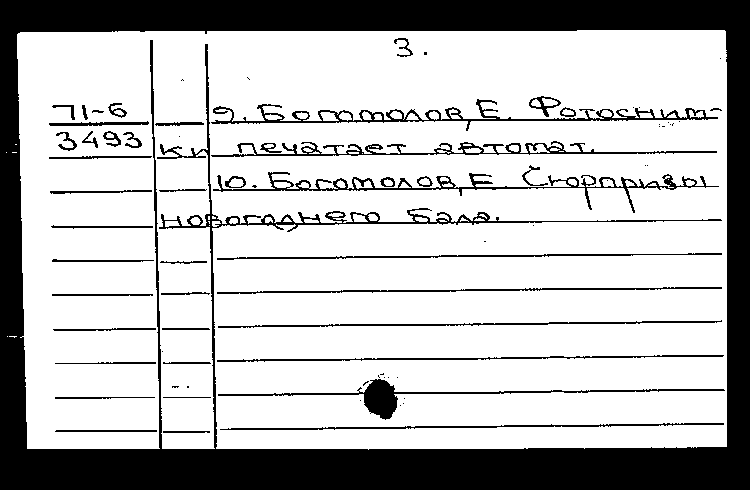 3.
71-6 9. Богомолов, Е. Фотосним-
3493 ки печатает автомат.
10. Богомолов, Е. Сюрпризы
новогоднего бала.